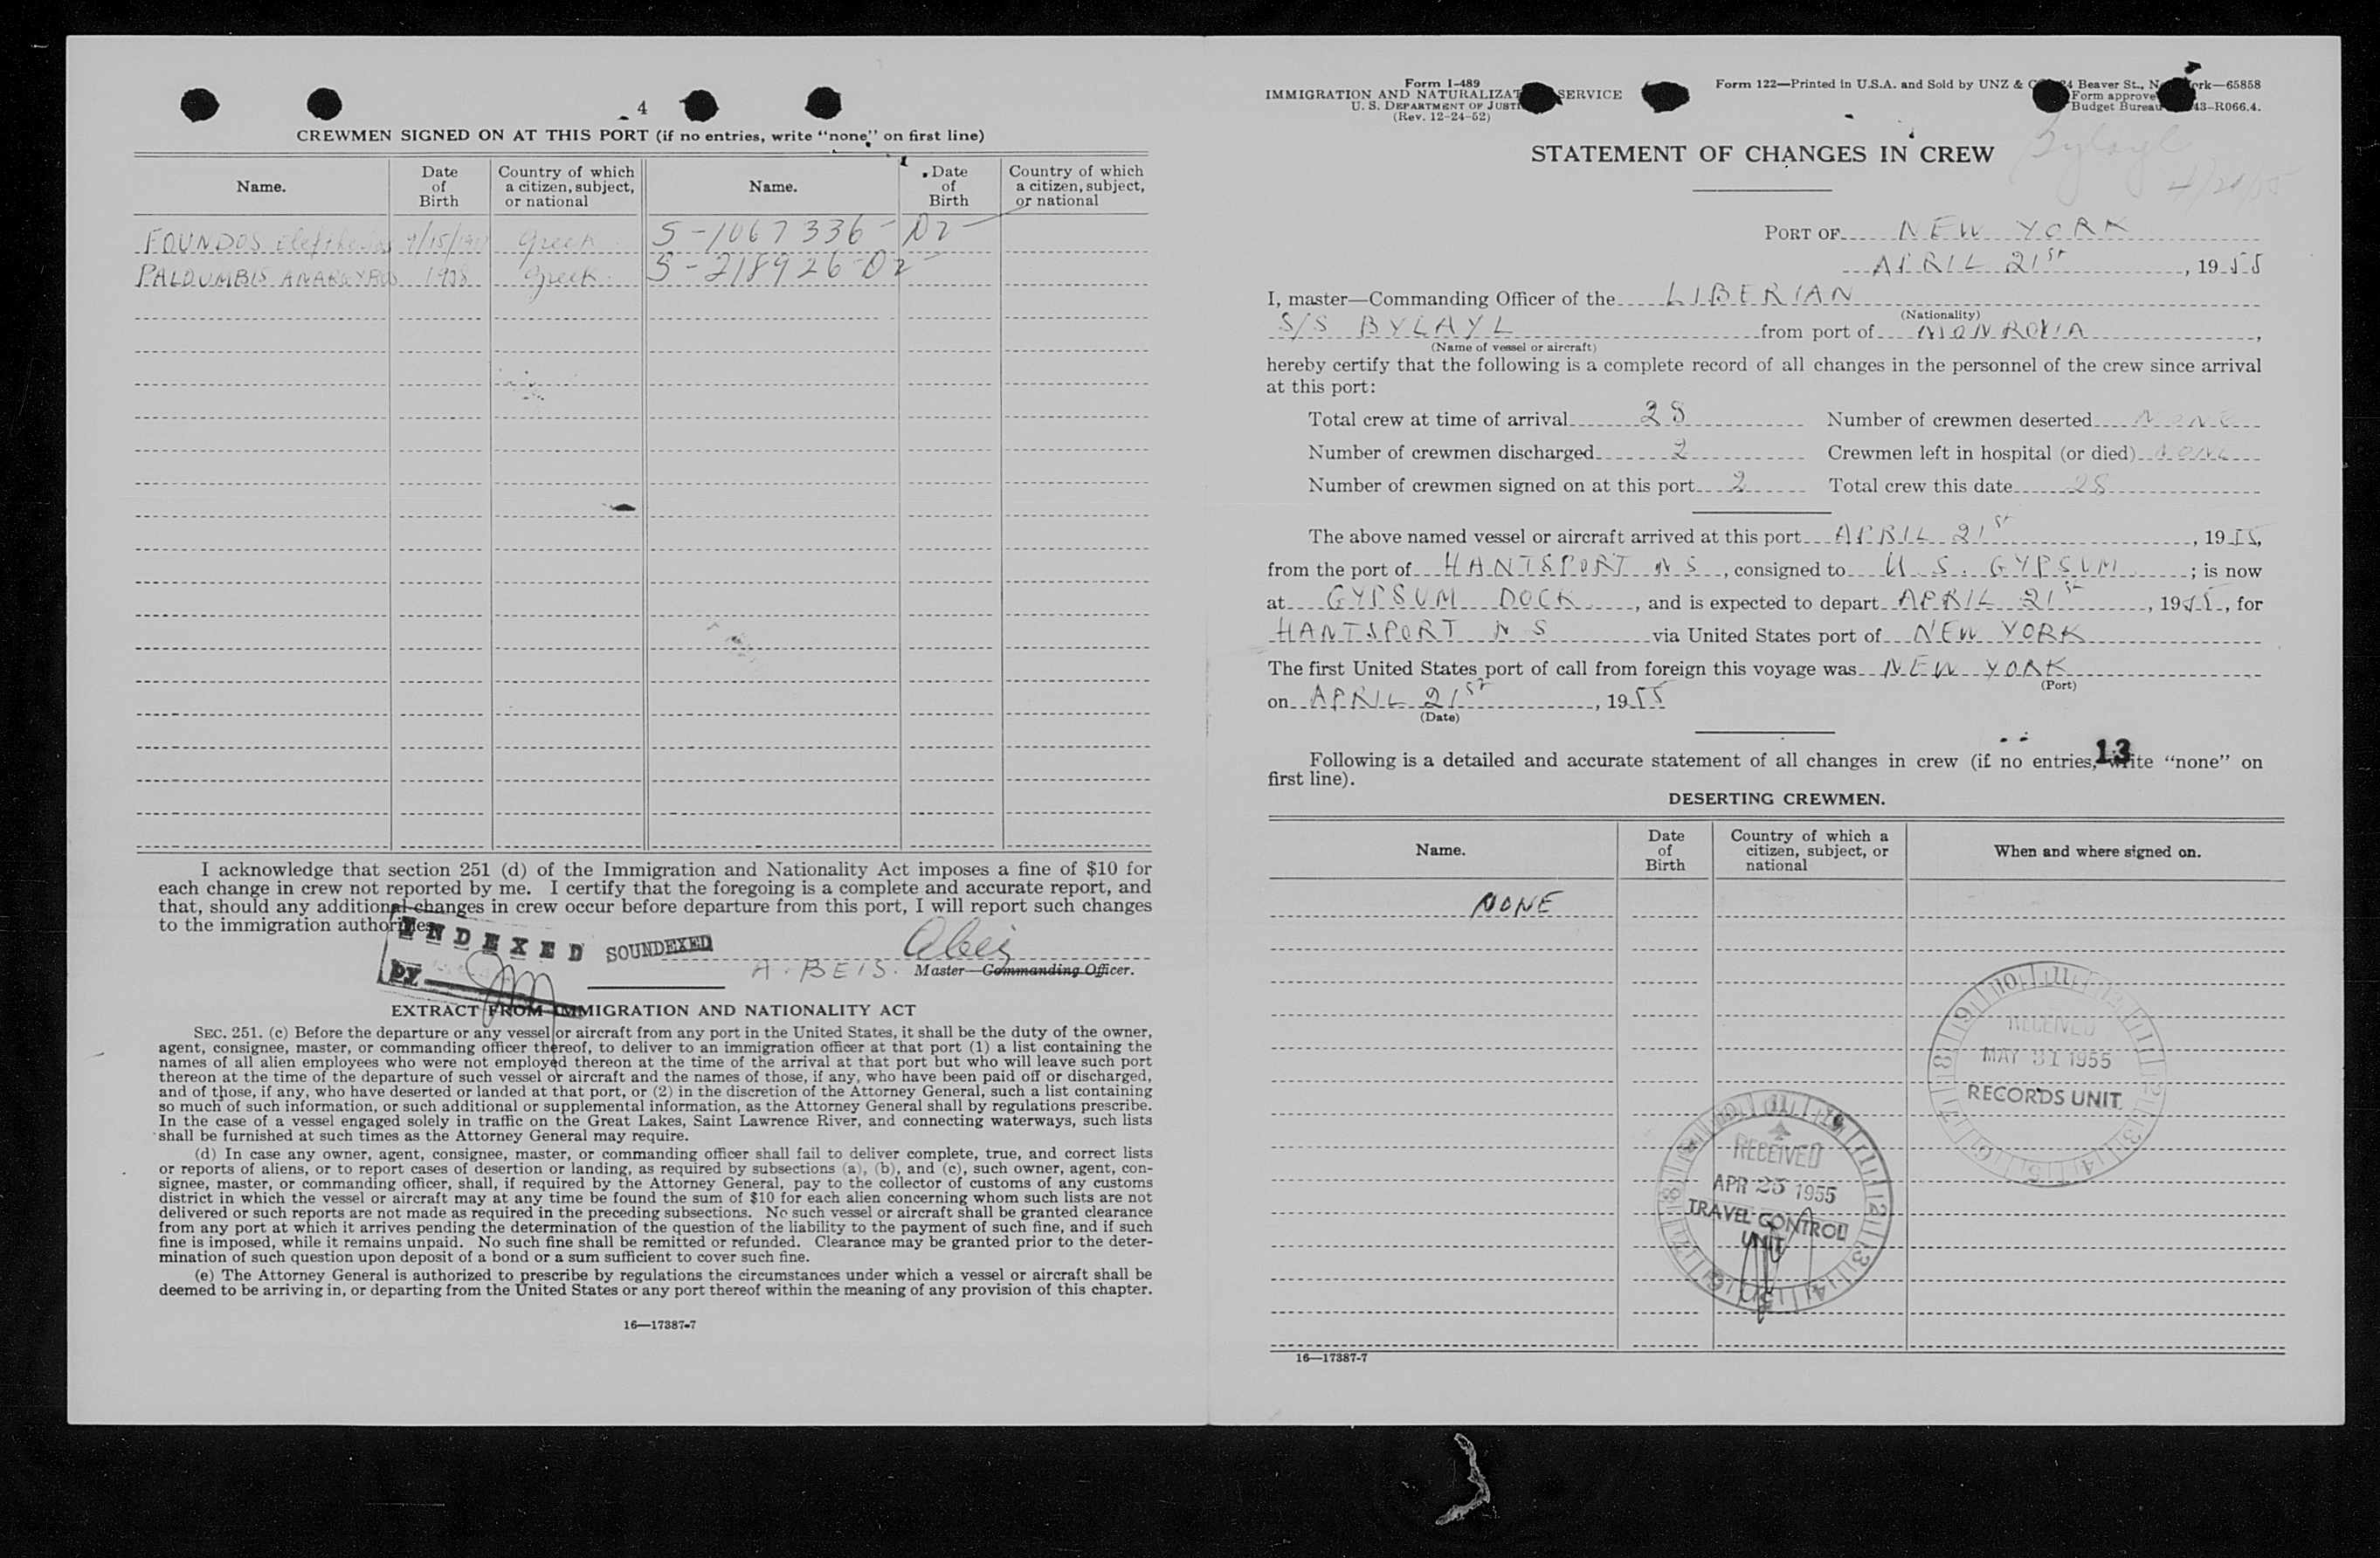 4
CREWMEN SIGNED ON AT THIS PORT (if no entries, write “none” on first line)
Name. Date of Birth Country of which a citizen, subject, or national Name. Date of Birth Country of which a citizen, subject, or national
FOUNDOS Greek S-1067336- D2-
PALOUMBIS ANARGYROS 1908 Greek. S-218926-D2-
I acknowledge that section 251 (d) of the Immigration and Nationality Act imposes a fine of $10 for
each change in crew not reported by me. I certify that the foregoing is a complete and accurate report, and
that, should any additional changes in crew occur before departure from this port, I will report such changes
to the immigration authorities.
INDEXED
by
SOUNDEXED
A. BEIS. Master—Commanding Officer.
EXTRACT FROM IMMIGRATION AND NATIONALITY ACT
SEC. 251. (c) Before the departure or any vessel or aircraft from any port in the United States, it shall be the duty of the owner,
agent, consignee, master, or commanding officer thereof, to deliver to an immigration officer at that port (1) a list containing the
names of all alien employees who were not employed thereon at the time of the arrival at that port but who will leave such port
thereon at the time of the departure of such vessel or aircraft and the names of those, if any, who have been paid off or discharged,
and of those, if any, who have deserted or landed at that port, or (2) in the discretion of the Attorney General, such a list containing
so much of such information, or such additional or supplemental information, as the Attorney General shall by regulations prescribe.
In the case of a vessel engaged solely in traffic on the Great Lakes, Saint Lawrence River, and connecting waterways, such lists
shall be furnished at such times as the Attorney General may require.
(d) In case any owner, agent, consignee, master, or commanding officer shall fail to deliver complete, true, and correct lists
or reports of aliens, or to report cases of desertion or landing, as required by subsections (a), (b), and (c), such owner, agent, con-
signee, master, or commanding officer, shall, if required by the Attorney General, pay to the collector of customs of any customs
district in which the vessel or aircraft may at any time be found the sum of $10 for each alien concerning whom such lists are not
delivered or such reports are not made as required in the preceding subsections. No such vessel or aircraft shall be granted clearance
from any port at which it arrives pending the determination of the question of the liability to the payment of such fine, and if such
fine is imposed, while it remains unpaid. No such fine shall be remitted or refunded. Clearance may be granted prior to the deter-
mination of such question upon deposit of a bond or a sum sufficient to cover such fine.
(e) The Attorney General is authorized to prescribe by regulations the circumstances under which a vessel or aircraft shall be
deemed to be arriving in, or departing from the United States or any port thereof within the meaning of any provision of this chapter.
16—17387-7
Form I-489
IMMIGRATION AND NATURALIZATION SERVICE
U. S. DEPARTMENT OF JUSTICE
(Rev. 12-24-52)
Form 122—Printed in U.S.A. and Sold by UNZ & Beaver St., New York—65858
Form approved
Budget Bureau 43-R066.4.
Bylayl
4/21/55
STATEMENT OF CHANGES IN CREW
PORT OF NEW YORK
APRIL 21st, 1955
I, master—Commanding Officer of the LIBERIAN
(Nationality)
S/S BYLAYL from port of MONROVIA,
(Name of vessel or aircraft)
hereby certify that the following is a complete record of all changes in the personnel of the crew since arrival
at this port:
Total crew at time of arrival 28 Number of crewmen deserted None
Number of crewmen discharged 2 Crewmen left in hospital (or died) None
Number of crewmen signed on at this port 2 Total crew this date 28
The above named vessel or aircraft arrived at this port APRIL 21st, 1955,
from the port of HANTSPORT N S, consigned to U.S. GYPSUM; is now
at GYPSUM DOCK, and is expected to depart APRIL 21st, 1955, for
HANTSPORT N S via United States port of NEW YORK
The first United States port of call from foreign this voyage was NEW YORK
(Port)
on APRIL 21st, 1955
(Date)
13
Following is a detailed and accurate statement of all changes in crew (if no entries, write “none” on
first line).
DESERTING CREWMEN.
Name. Date of Birth Country of which a citizen, subject, or national When and where signed on.
NONE
RECEIVED
MAY 31 1955
RECORDS UNIT
RECEIVED
APR 25 1955
TRAVEL CONTROL
UNIT
16—17387-7